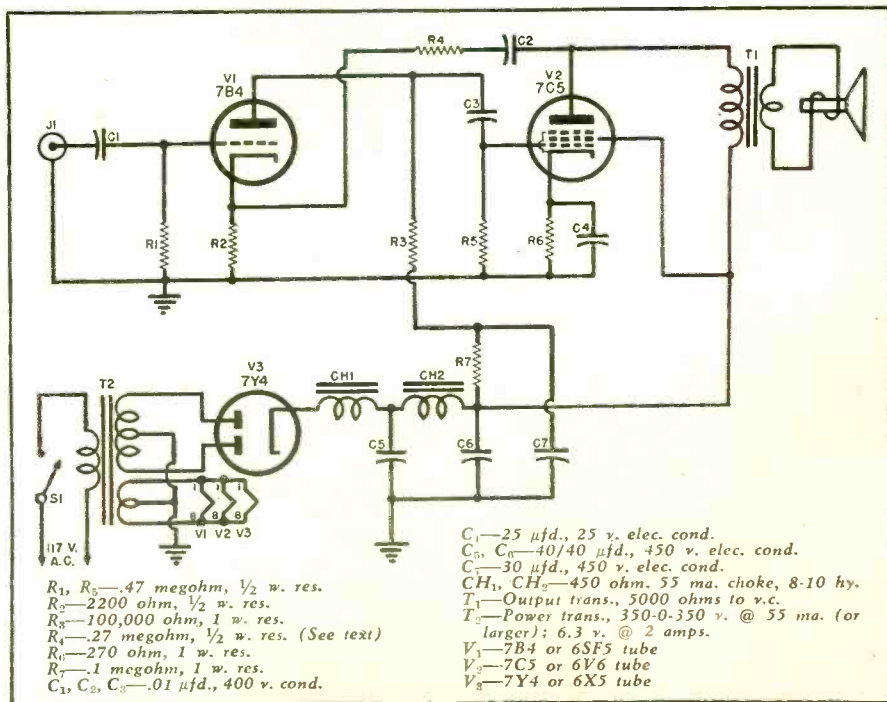 R4
C2
T1
V1
7B4
V2
7C5
C3
J1
C1
R1
R2
R3
R5
R6
C4
R7
V3
7Y4
CH1
CH2
T2
C5
C6
C7
S1
1
1
1
8
8
8
V1
V2
V3
117 V.
A.C.
R₁, R₅—.47 megohm, ½ w. res.
R₂—2200 ohm, ½ w. res.
R₃—100,000 ohm, 1 w. res.
R₄—.27 megohm, ½ w. res. (See text)
R₆—270 ohm, 1 w. res.
R₇—.1 megohm, 1 w. res.
C₁, C₂, C₃—.01 µfd., 400 v. cond.
C₄—25 µfd., 25 v. elec. cond.
C₅, C₆—40/40 µfd., 450 v. elec. cond.
C₇—30 µfd., 450 v. elec. cond.
CH₁, CH₂—450 ohm. 55 ma. choke, 8-10 hy.
T₁—Output trans., 5000 ohms to v.c.
T₂—Power trans., 350-0-350 v. @ 55 ma. (or
larger); 6.3 v. @ 2 amps.
V₁—7B4 or 6SF5 tube
V₂—7C5 or 6V6 tube
V₃—7Y4 or 6X5 tube